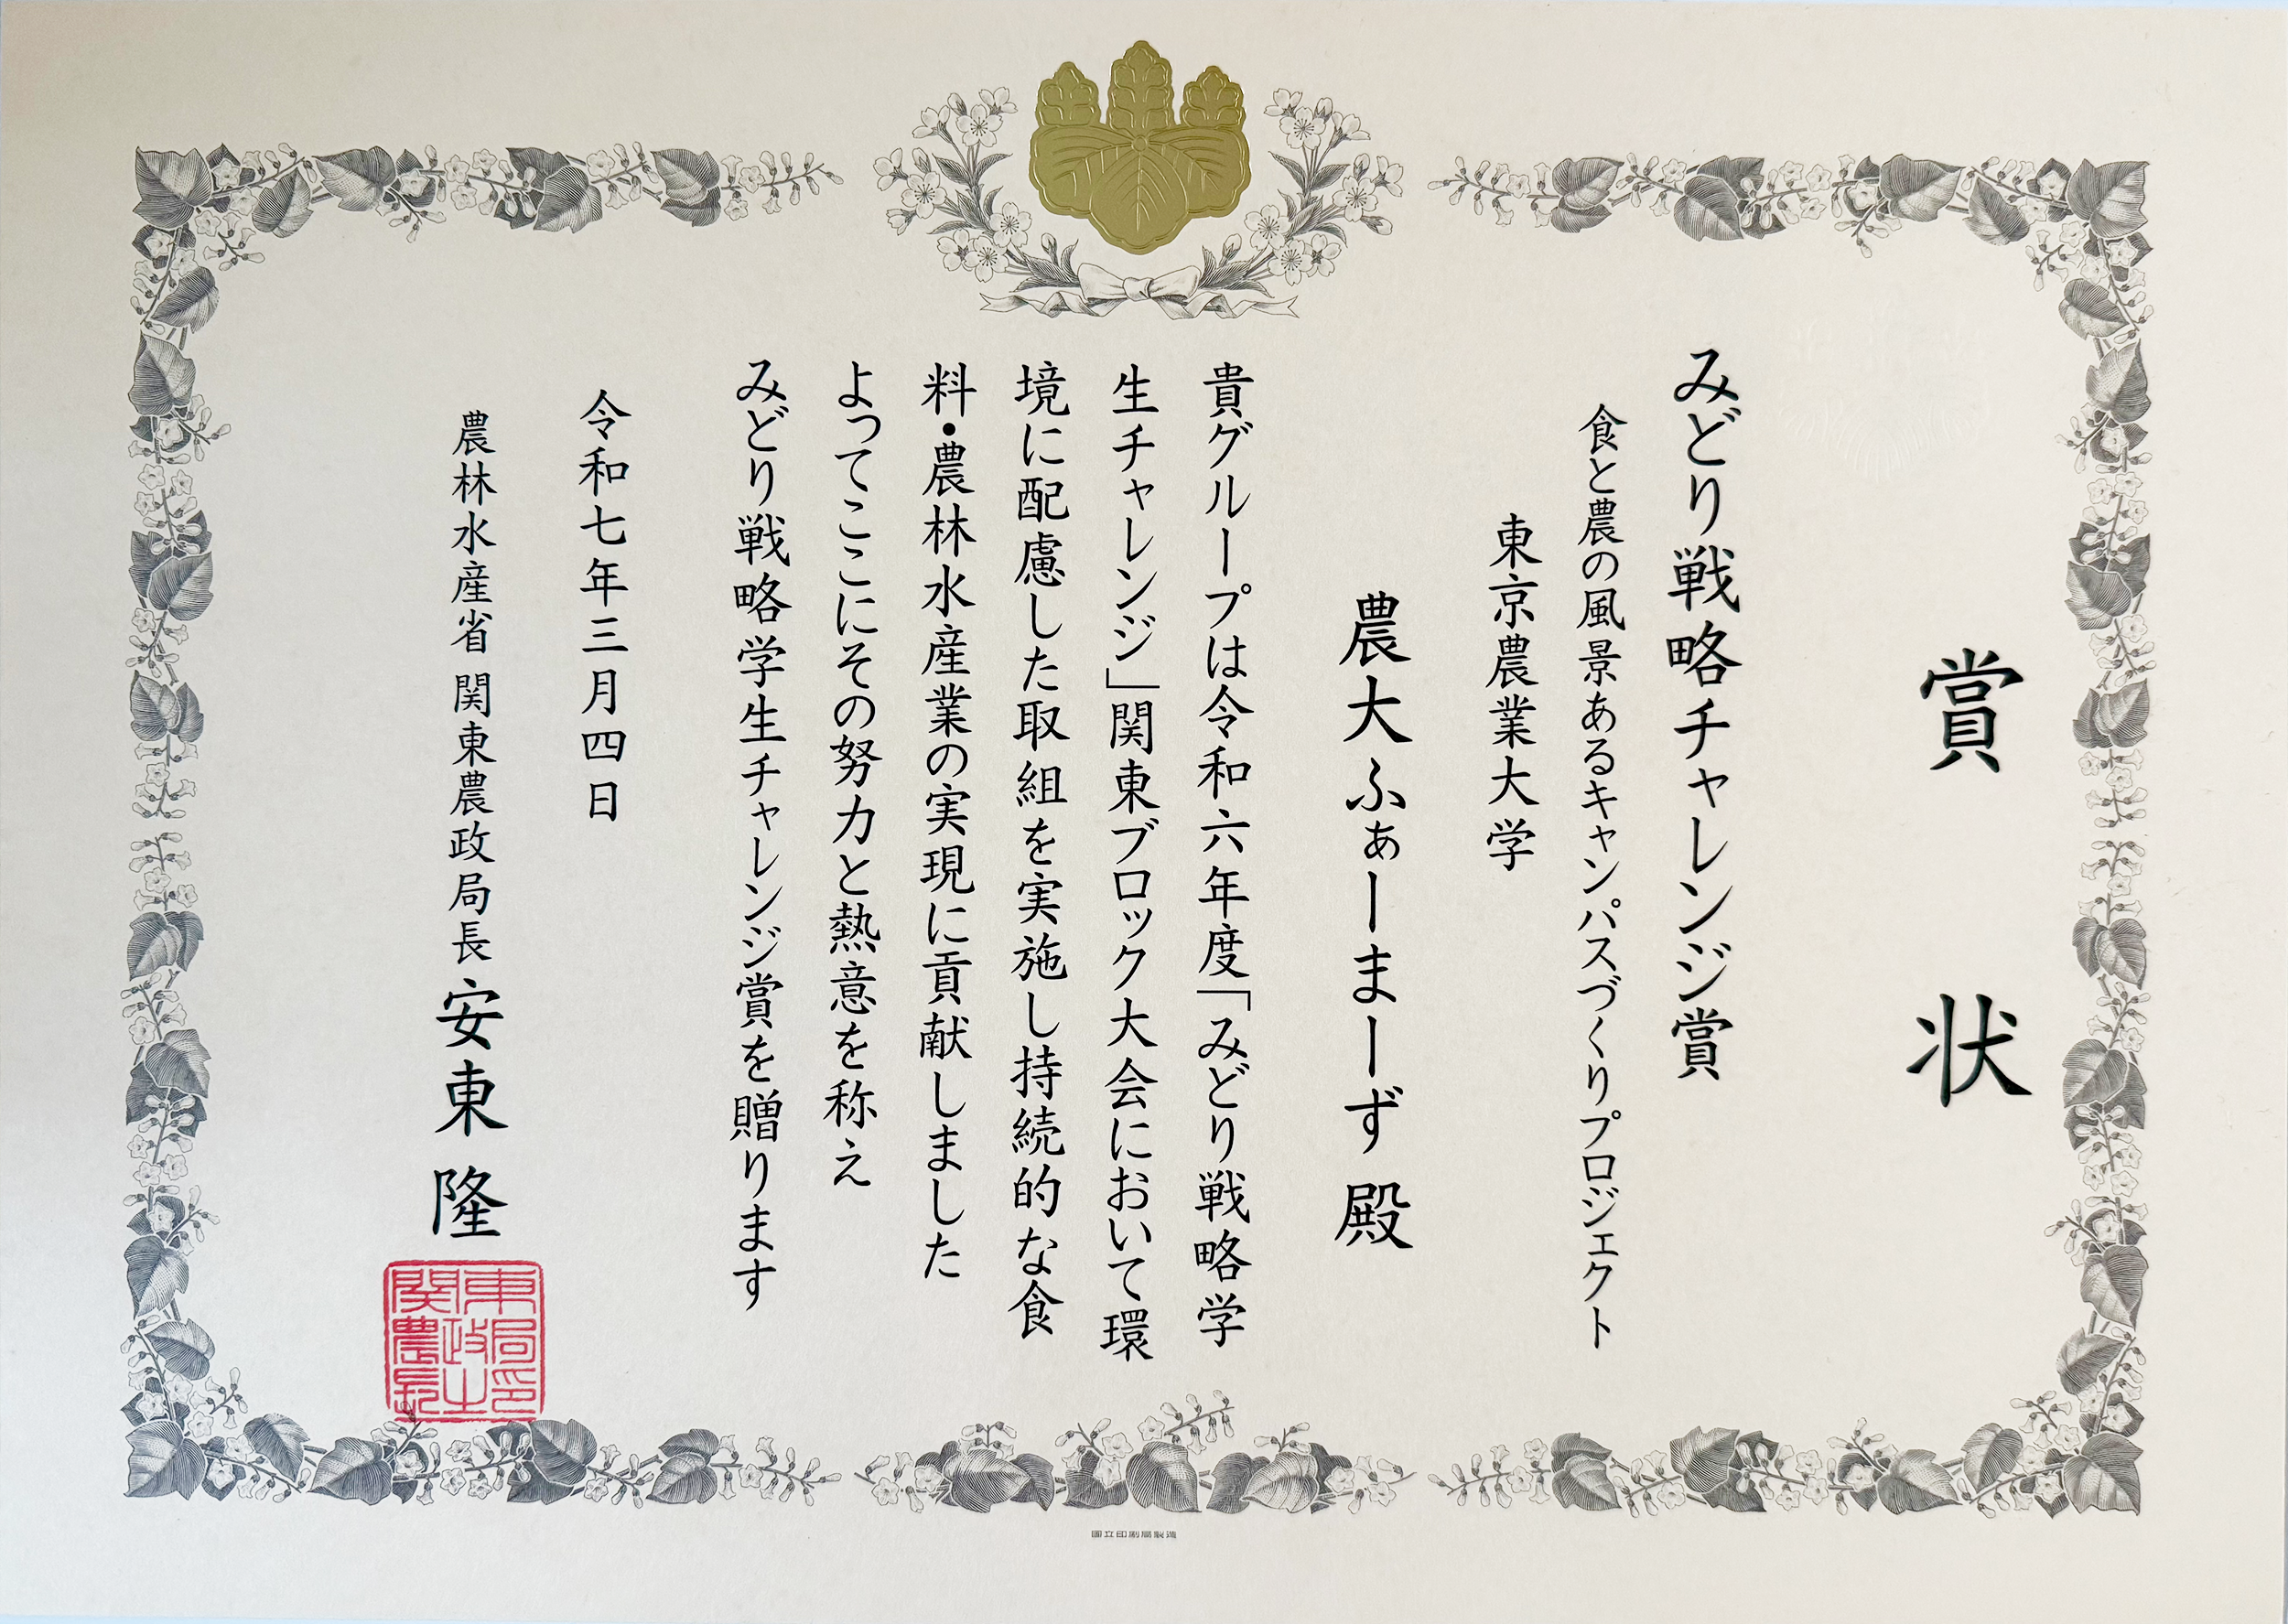 賞状
みどり戦略チャレンジ賞
食と農の風景あるキャンパスづくりプロジェクト
東京農業大学
農大ふぁーまーず 殿
貴グループは令和六年度「みどり戦略学
生チャレンジ」関東ブロック大会において環
境に配慮した取組を実施し持続的な食
料・農林水産業の実現に貢献しました
よってここにその努力と熱意を称え
みどり戦略学生チャレンジ賞を贈ります
令和七年三月四日
農林水産省 関東農政局長 安東 隆
関東農政局長之印
国立印刷局製造